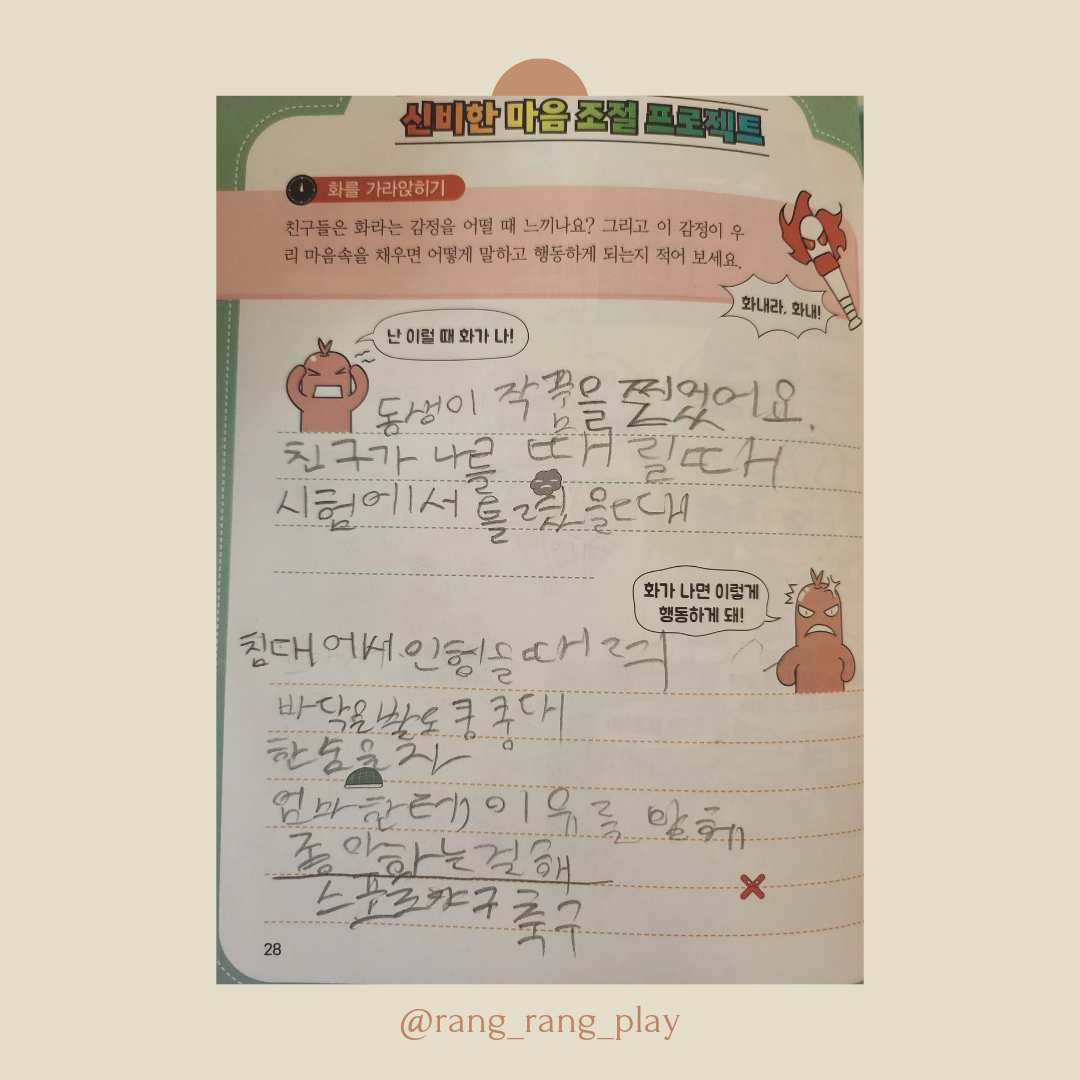 신비한 마음 조절 프로젝트
화를 가라앉히기
친구들은 화라는 감정을 어떨 때 느끼나요? 그리고 이 감정이 우
리 마음속을 채우면 어떻게 말하고 행동하게 되는지 적어 보세요.
화내라, 화내!
난 이럴 때 화가 나!
동생이 작품을 찢었어요.
친구가 나를 때릴때
시험에서 틀렸을때
화가 나면 이렇게
행동하게 돼!
침대에서 인형을 때려
바닥을 발로 쿵쿵대
한숨을 자
엄마한테 이유를 말해
좋아하는걸 해
스포츠야구 축구
28
@rang_rang_play